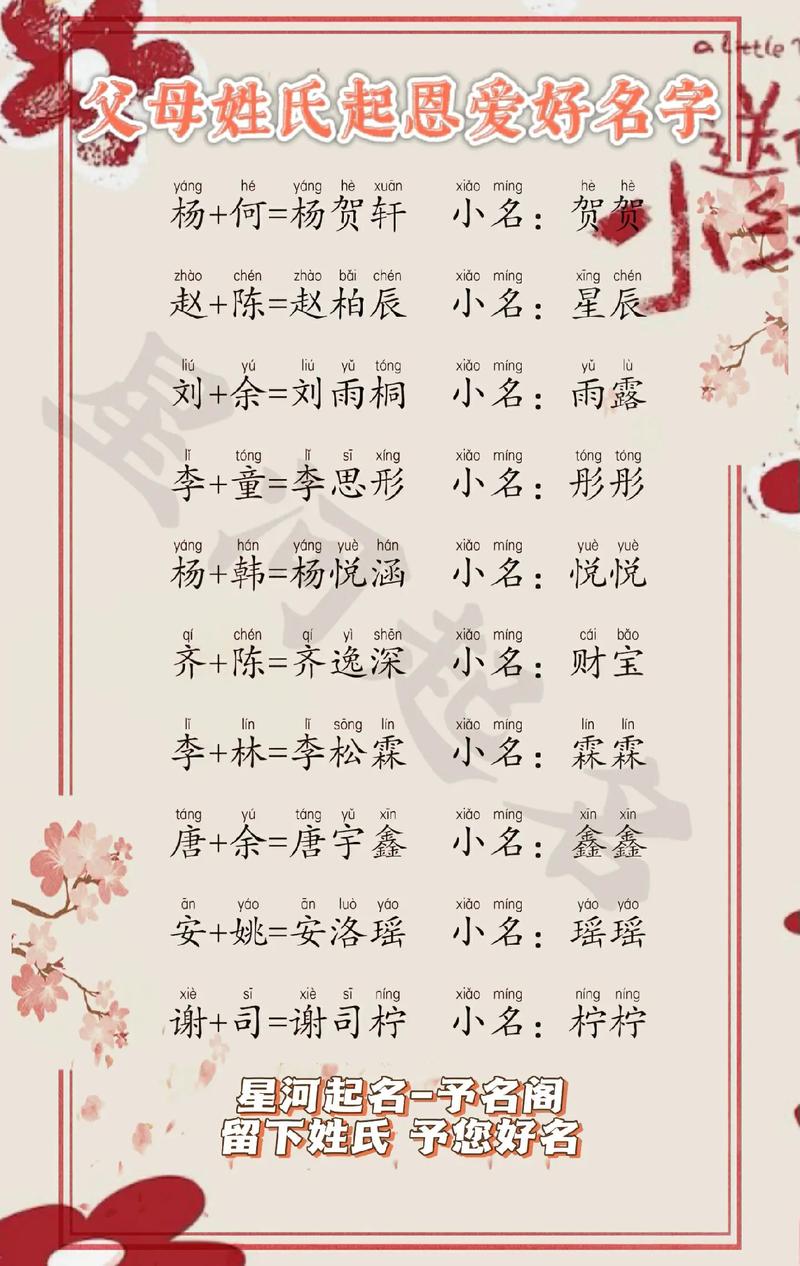 a little
父母姓氏起恩爱好名字
送
yáng hé yáng hè xuān xiǎo míng hè hè
杨+何=杨贺轩 小名：贺贺
zhào chén zhào bǎi chén xiǎo míng xīng chén
赵+陈=赵柏辰 小名：星辰
liú yú liú yǔ tóng xiǎo míng yǔ lù
刘+余=刘雨桐 小名：雨露
lǐ tóng lǐ sī xíng xiǎo míng tóng tóng
李+童=李思形 小名：彤彤
yáng hán yáng yuè hán xiǎo míng yuè yuè
杨+韩=杨悦涵 小名：悦悦
qí chén qí yì shēn xiǎo míng cái bǎo
齐+陈=齐逸深 小名：财宝
lǐ lín lǐ sōng lín xiǎo míng lín lín
李+林=李松霖 小名：霖霖
táng yú táng yǔ xīn xiǎo míng xīn xīn
唐+余=唐宇鑫 小名：鑫鑫
ān yáo ān luò yáo xiǎo míng yáo yáo
安+姚=安洛瑶 小名：瑶瑶
xiè sī xiè sī níng xiǎo míng níng níng
谢+司=谢司柠 小名：柠柠
星河起名
星河起名-予名阁
留下姓氏 予您好名